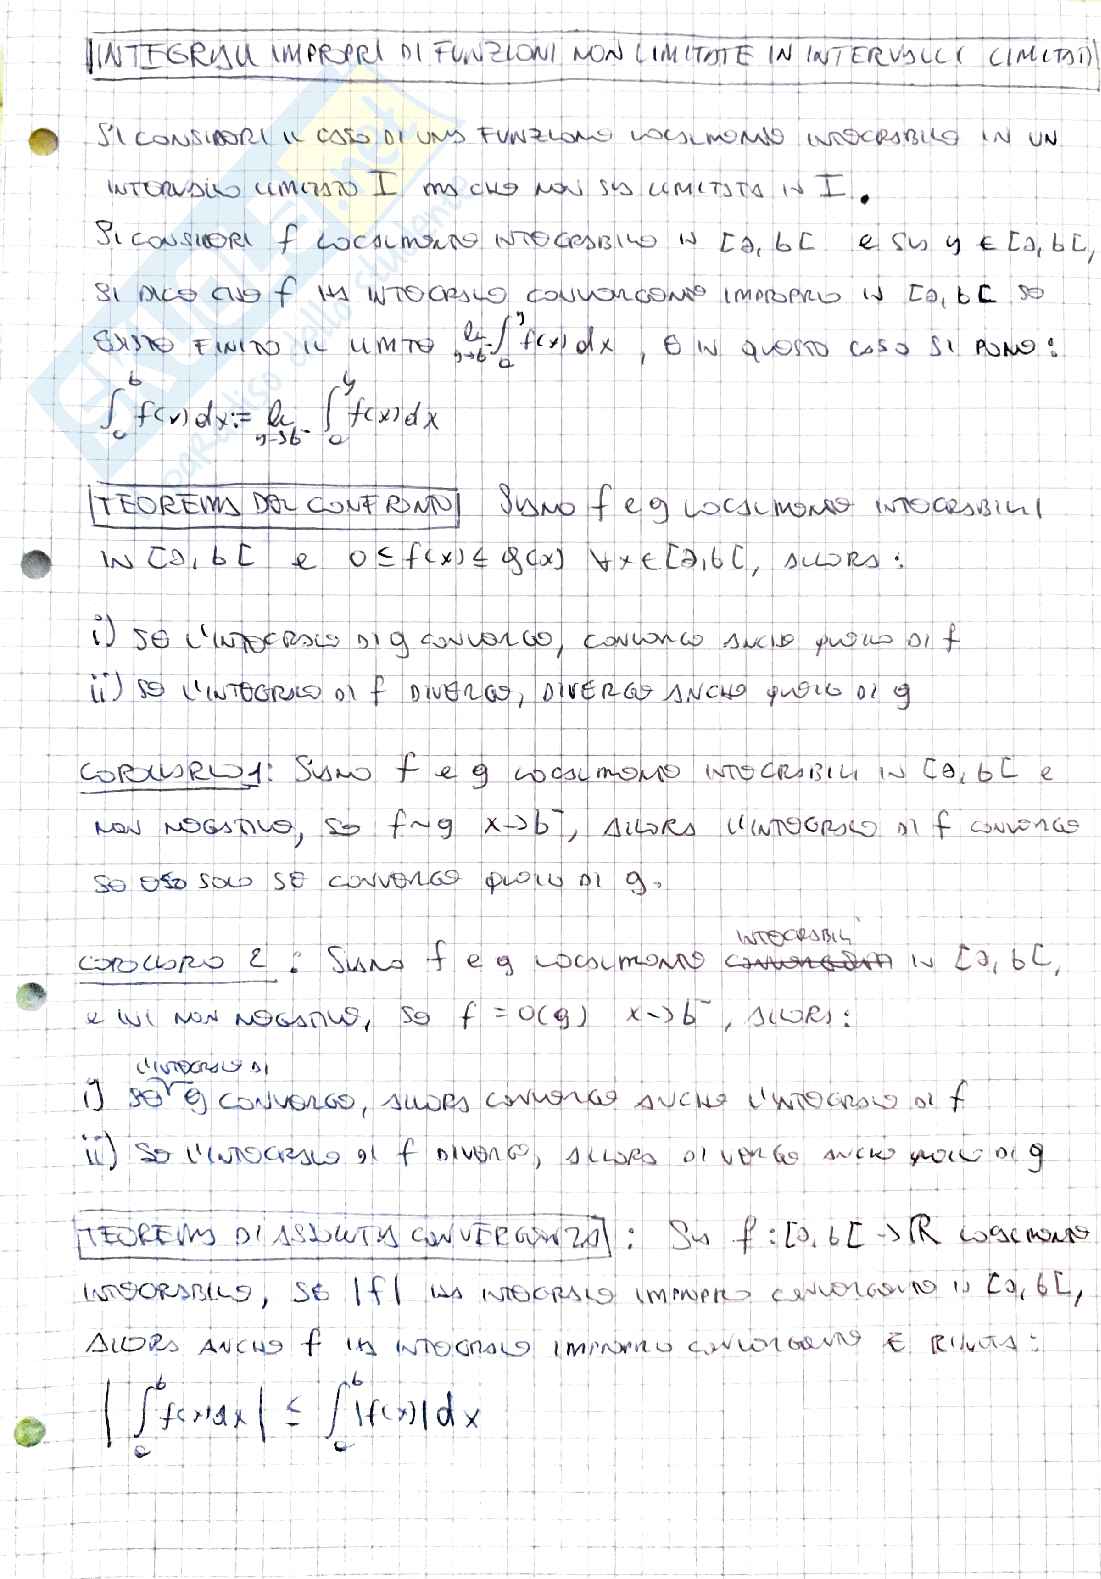 INTEGRALI IMPROPRI DI FUNZIONI NON LIMITATE IN INTERVALLI LIMITATI
SI CONSIDERI IL CASO DI UNA FUNZIONE LOCALMENTE INTEGRABILE IN UN
INTERVALLO LIMITATO I MA CHE NON SIA LIMITATA IN I.
SI CONSIDERI f LOCALMENTE INTEGRABILE IN [a, b[ e SIA y ∈ [a, b[,
SI DICE CHE f HA INTEGRALE CONVERGENTE IMPROPRIO IN [a, b[ SE
ESISTE FINITO IL LIMITE lim y→b⁻ ∫_a^y f(x) dx, E IN QUESTO CASO SI PONE:
∫_a^b f(x) dx := lim y→b⁻ ∫_a^y f(x) dx
TEOREMA DEL CONFRONTO SIANO f e g LOCALMENTE INTEGRABILI
IN [a, b[ e 0 ≤ f(x) ≤ g(x) ∀x ∈ [a, b[, ALLORA:
i) SE L'INTEGRALE DI g CONVERGE, CONVERGE ANCHE QUELLO DI f
ii) SE L'INTEGRALE DI f DIVERGE, DIVERGE ANCHE QUELLO DI g
COROLLARIO 1: SIANO f e g LOCALMENTE INTEGRABILI IN [a, b[ e
NON NEGATIVE, SE f~g x→b⁻, ALLORA L'INTEGRALE DI f CONVERGE
SE E SOLO SE CONVERGE QUELLO DI g.
INTEGRABILI
COROLLARIO 2: SIANO f e g LOCALMENTE IN [a, b[,
e IVI NON NEGATIVE, SE f = O(g) x→b⁻, ALLORA:
L'INTEGRALE DI
i) SE g CONVERGE, ALLORA CONVERGE ANCHE L'INTEGRALE DI f
ii) SE L'INTEGRALE DI f DIVERGE, ALLORA DIVERGE ANCHE QUELLO DI g
TEOREMA DI ASSOLUTA CONVERGENZA: SIA f: [a, b[ → ℝ LOCALMENTE
INTEGRABILE, SE |f| HA INTEGRALE IMPROPRIO CONVERGENTE IN [a, b[,
ALLORA ANCHE f HA INTEGRALE IMPROPRIO CONVERGENTE E RISULTA:
|∫_a^b f(x) dx| ≤ ∫_a^b |f(x)| dx
SKUOLA.net
paradiso dello studente